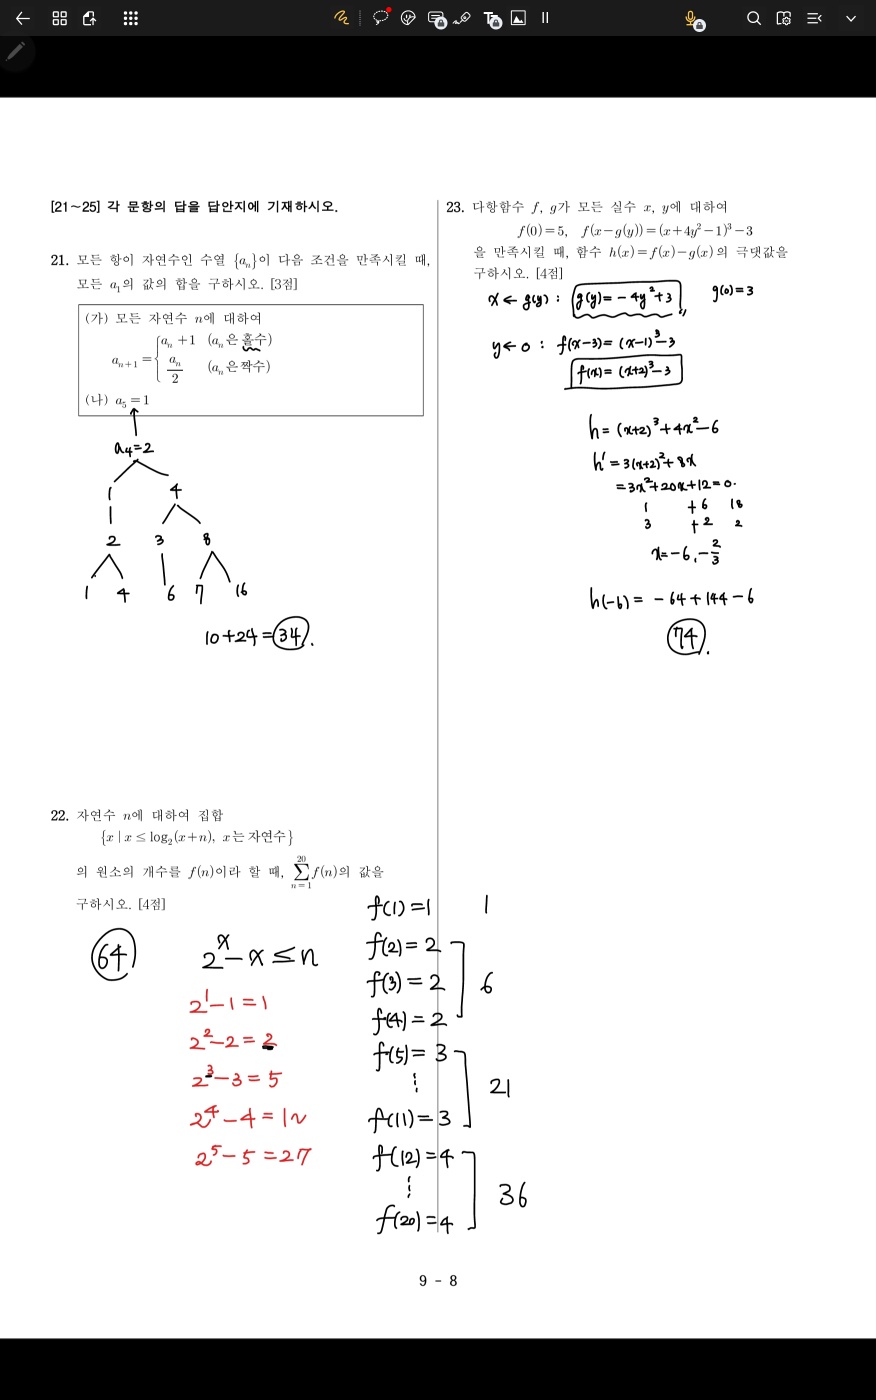 [21~25] 각 문항의 답을 답안지에 기재하시오.
21. 모든 항이 자연수인 수열 {aₙ}이 다음 조건을 만족시킬 때,
모든 a₁의 값의 합을 구하시오. [3점]
(가) 모든 자연수 n에 대하여
aₙ₊₁ = { aₙ+1 (aₙ은 홀수)
aₙ/2 (aₙ은 짝수)
(나) a₅=1
a₄=2
1 4
2 3 8
1 4 6 7 16
10+24=34.
22. 자연수 n에 대하여 집합
{x | x ≤ log₂(x+n), x는 자연수}
의 원소의 개수를 f(n)이라 할 때, ∑ₙ₌₁²⁰ f(n)의 값을
구하시오. [4점]
64
2ˣ-x≤n
2¹-1=1
2²-2=2
2³-3=5
2⁴-4=12
2⁵-5=27
f(1)=1 1
f(2)=2
f(3)=2 6
f(4)=2
f(5)=3
⋮ 21
f(11)=3
f(12)=4
⋮ 36
f(20)=4
23. 다항함수 f, g가 모든 실수 x, y에 대하여
f(0)=5, f(x-g(y))=(x+4y²-1)³-3
을 만족시킬 때, 함수 h(x)=f(x)-g(x)의 극댓값을
구하시오. [4점]
x←g(y) : g(y)=-4y²+3 g(0)=3
y←0 : f(x-3)=(x-1)³-3
f(x)=(x+2)³-3
h=(x+2)³+4x²-6
h'=3(x+2)²+8x
=3x²+20x+12=0.
1 +6 18
3 +2 2
x=-6,-2/3
h(-6)=-64+144-6
74.
9 - 8